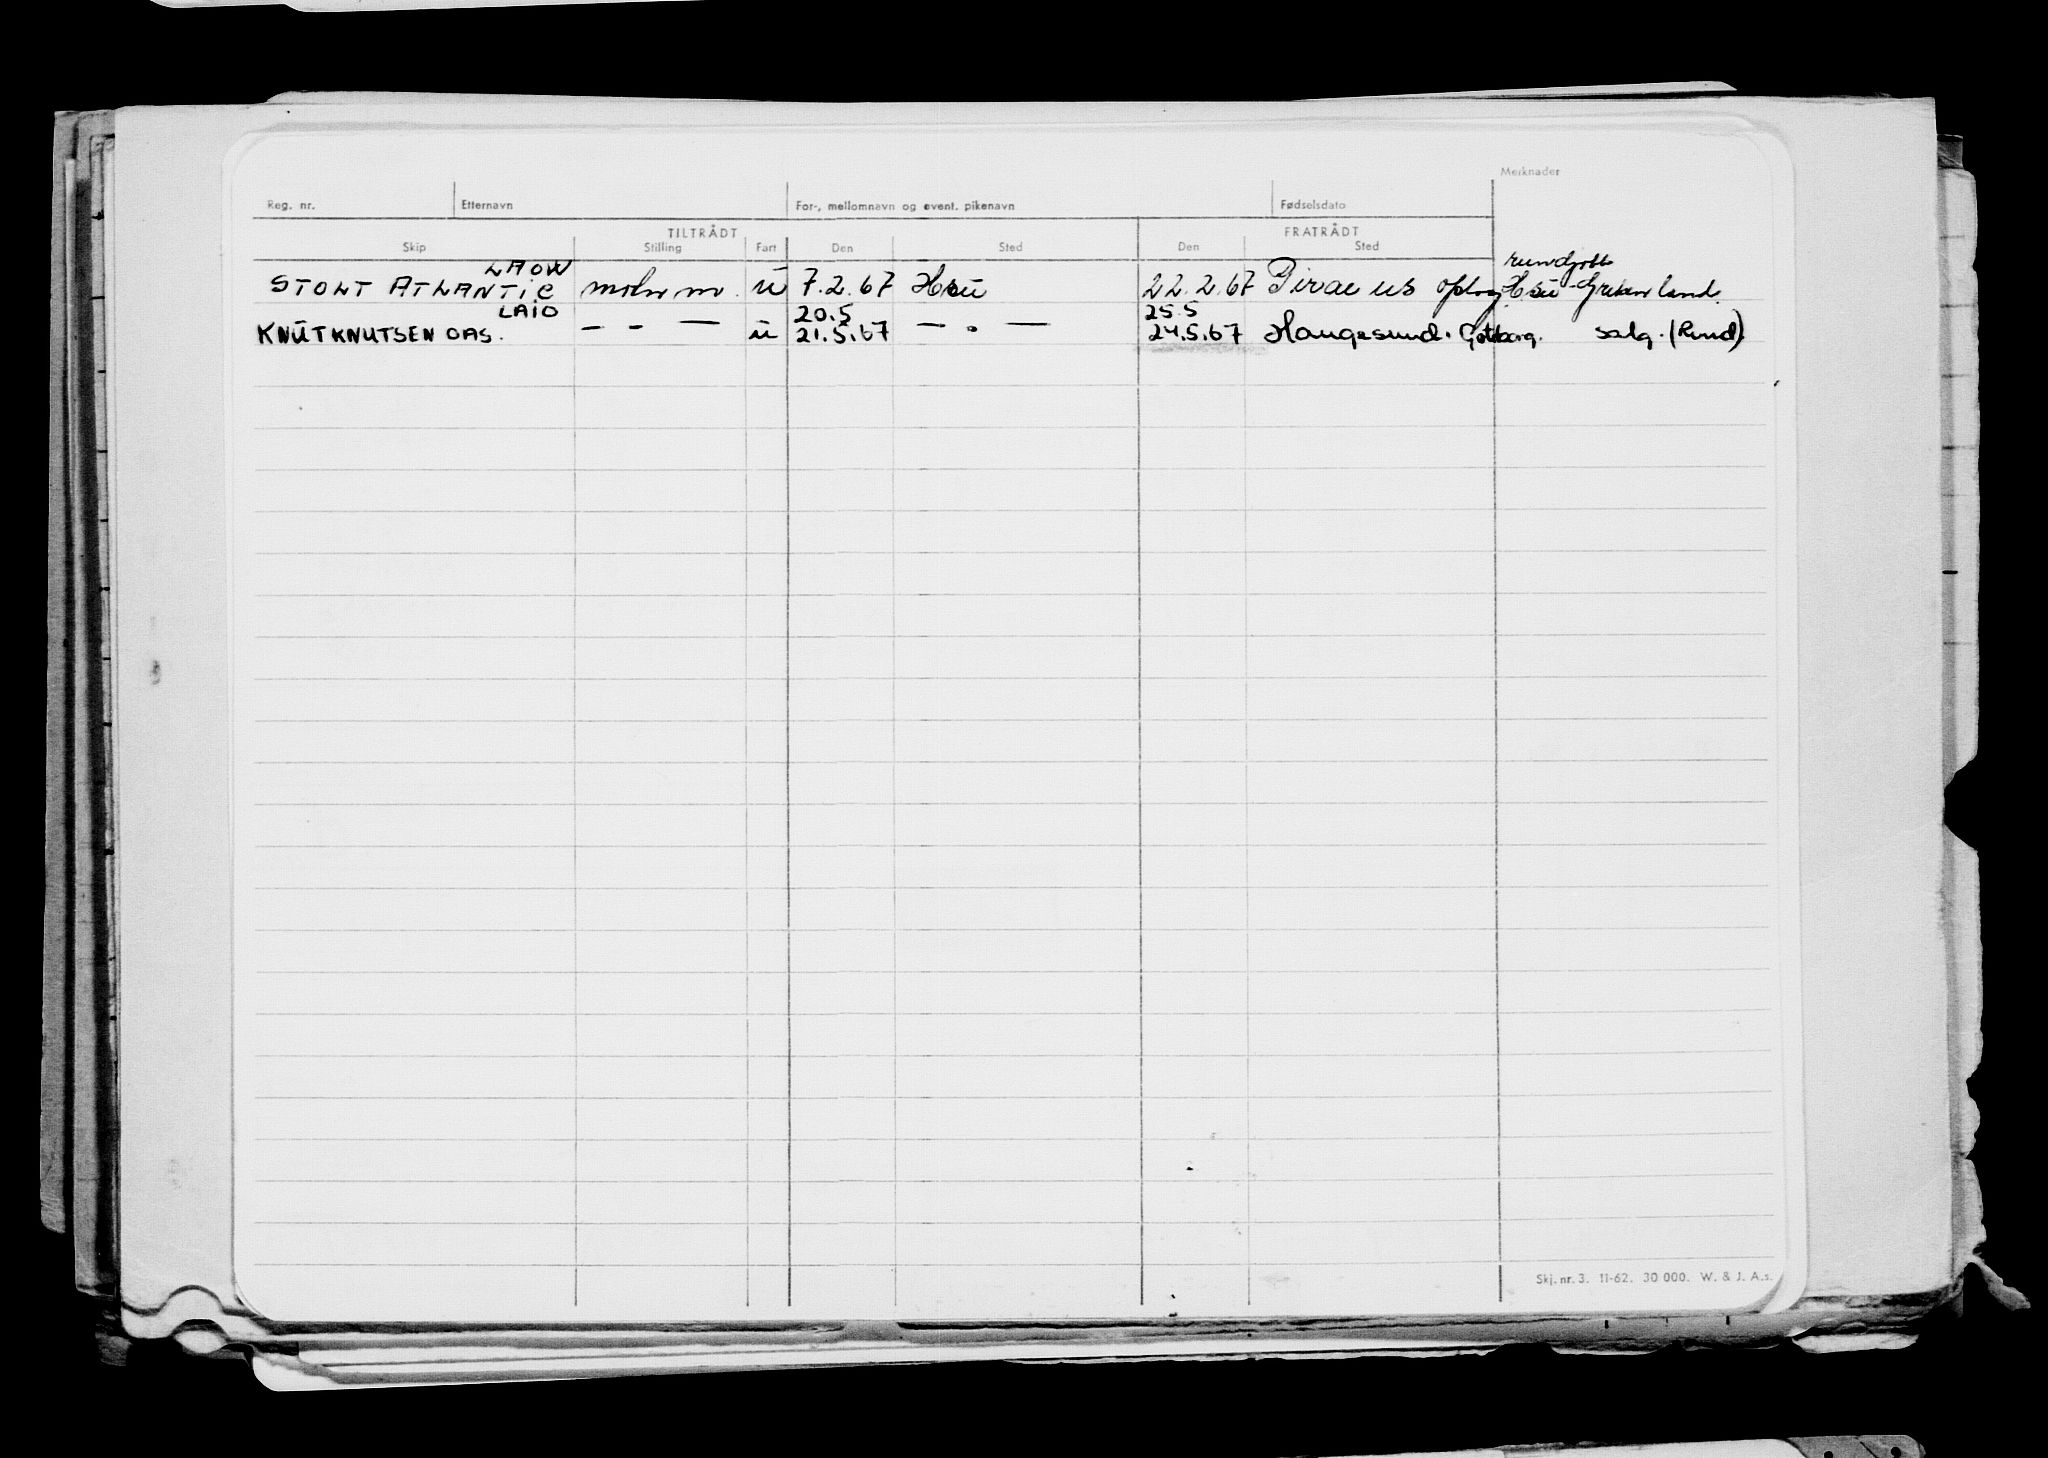 Merknader
Reg. nr. Etternavn For-, mellomnavn og event. pikenavn Fødselsdato
TILTRÅDT FRATRÅDT
Skip Stilling Fart Den Sted Den Sted
LAOW rundjobb
STOLT ATLANTIC u 7.2.67 Hsu 22.2.67 Piraeus oplag Hsu - Grekenland
LAIO 20.5 25.5
KNUT KNUTSEN OAS. — - — u 21.5.67 — " — 24.5.67 Haugesund. Gøtborg. salg. (Rund)
Skj. nr. 3. 11-62. 30 000. W. & J. A.s.